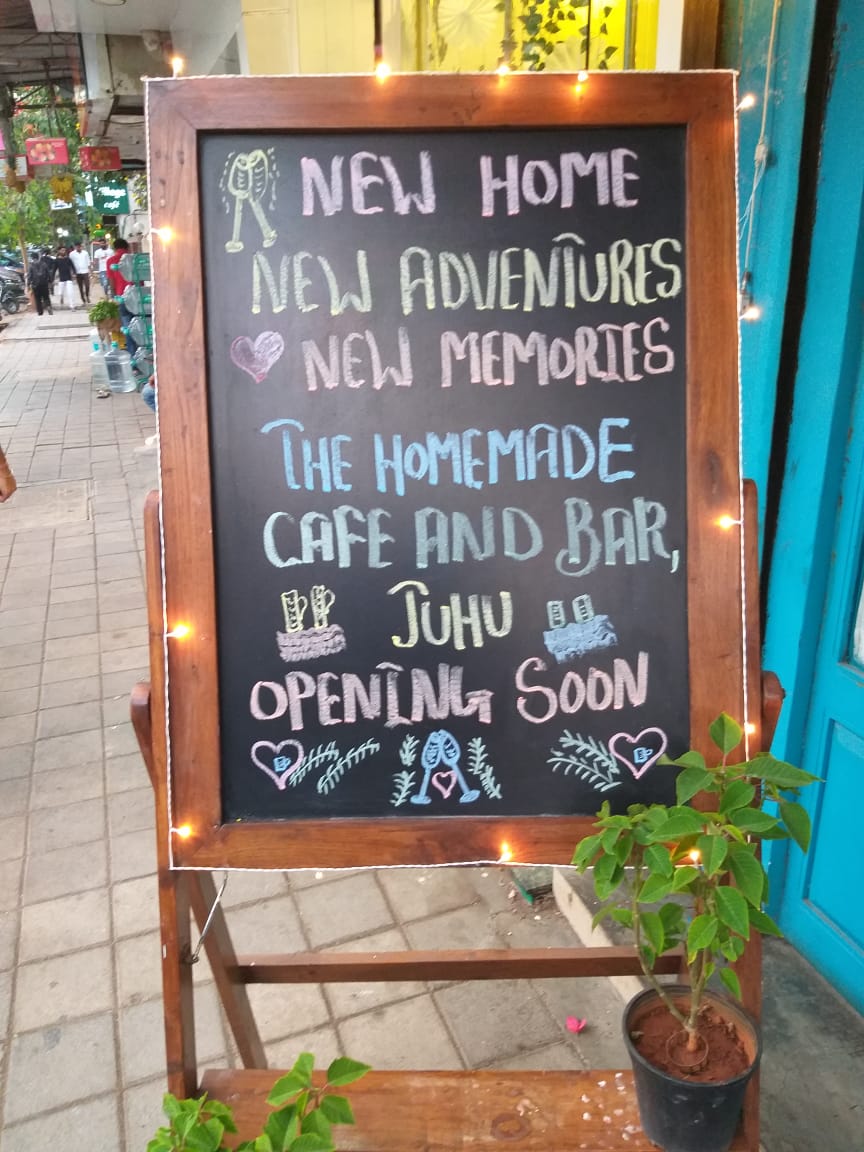 NEW HOME
NEW ADVENTURES
NEW MEMORIES
THE HOMEMADE
CAFE AND BAR,
JUHU
OPENING SOON